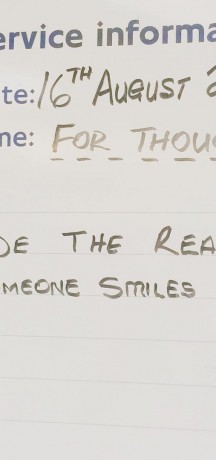 ervice informa
te: 16TH AUGUST 2
ne: FOR THOU
DE THE REA
MEONE SMILES